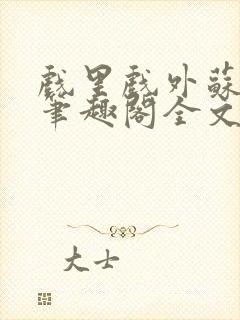 戲里戲外蘇
筆趣閣全文
大士